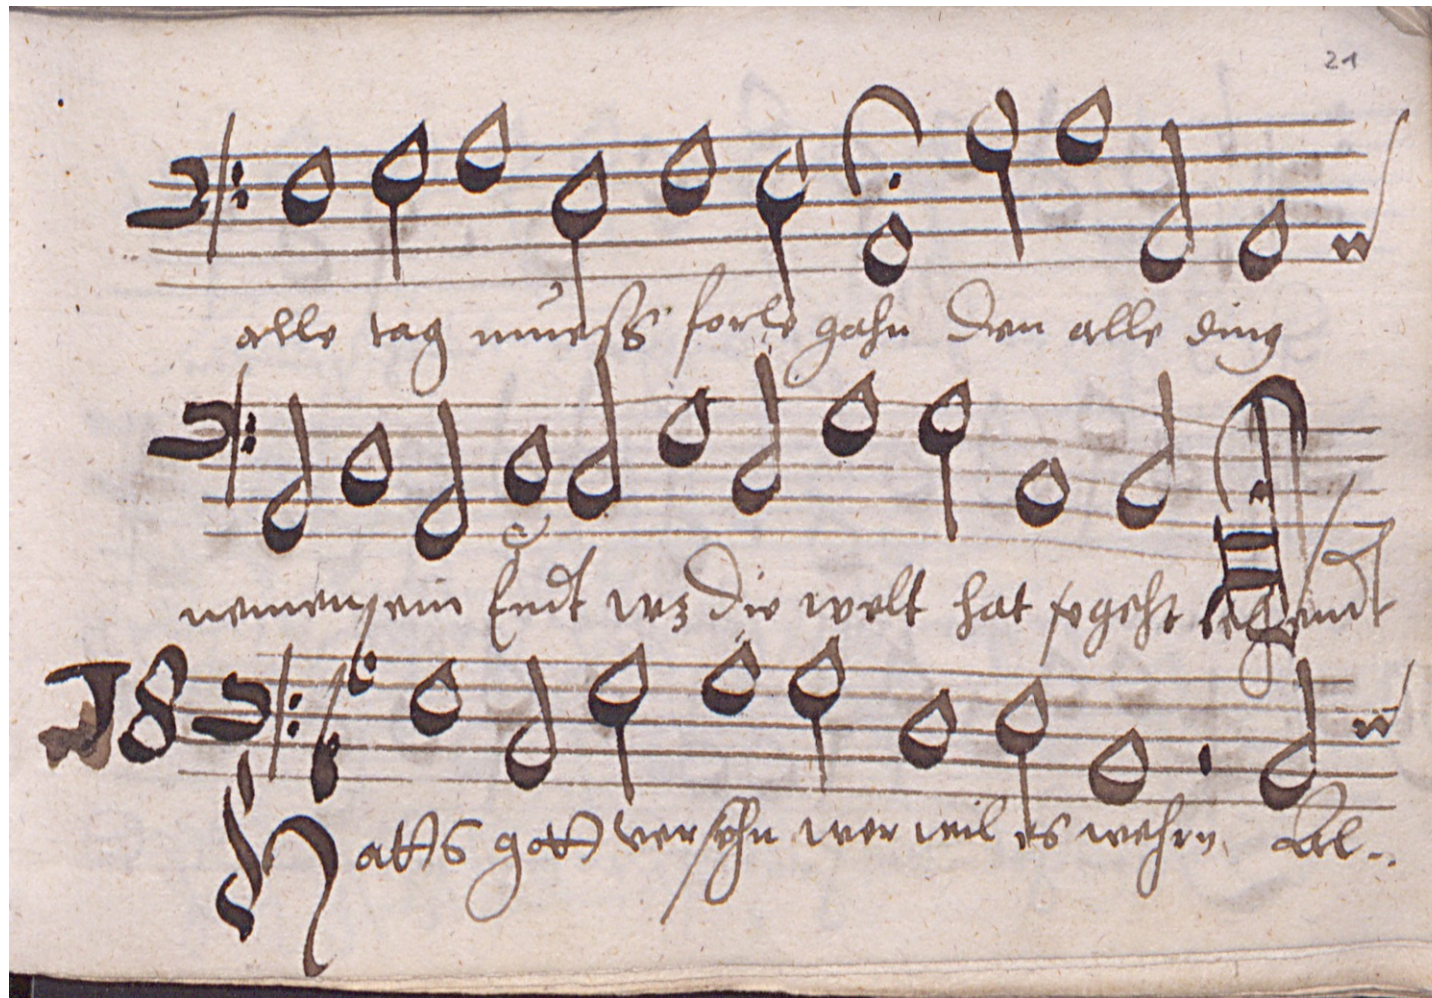 21
alle tag muess forle gahn den alle ding
nemen sein Endt wz die welt hat gehet endt
18
Hatts gott versehn wer wil es wehrn